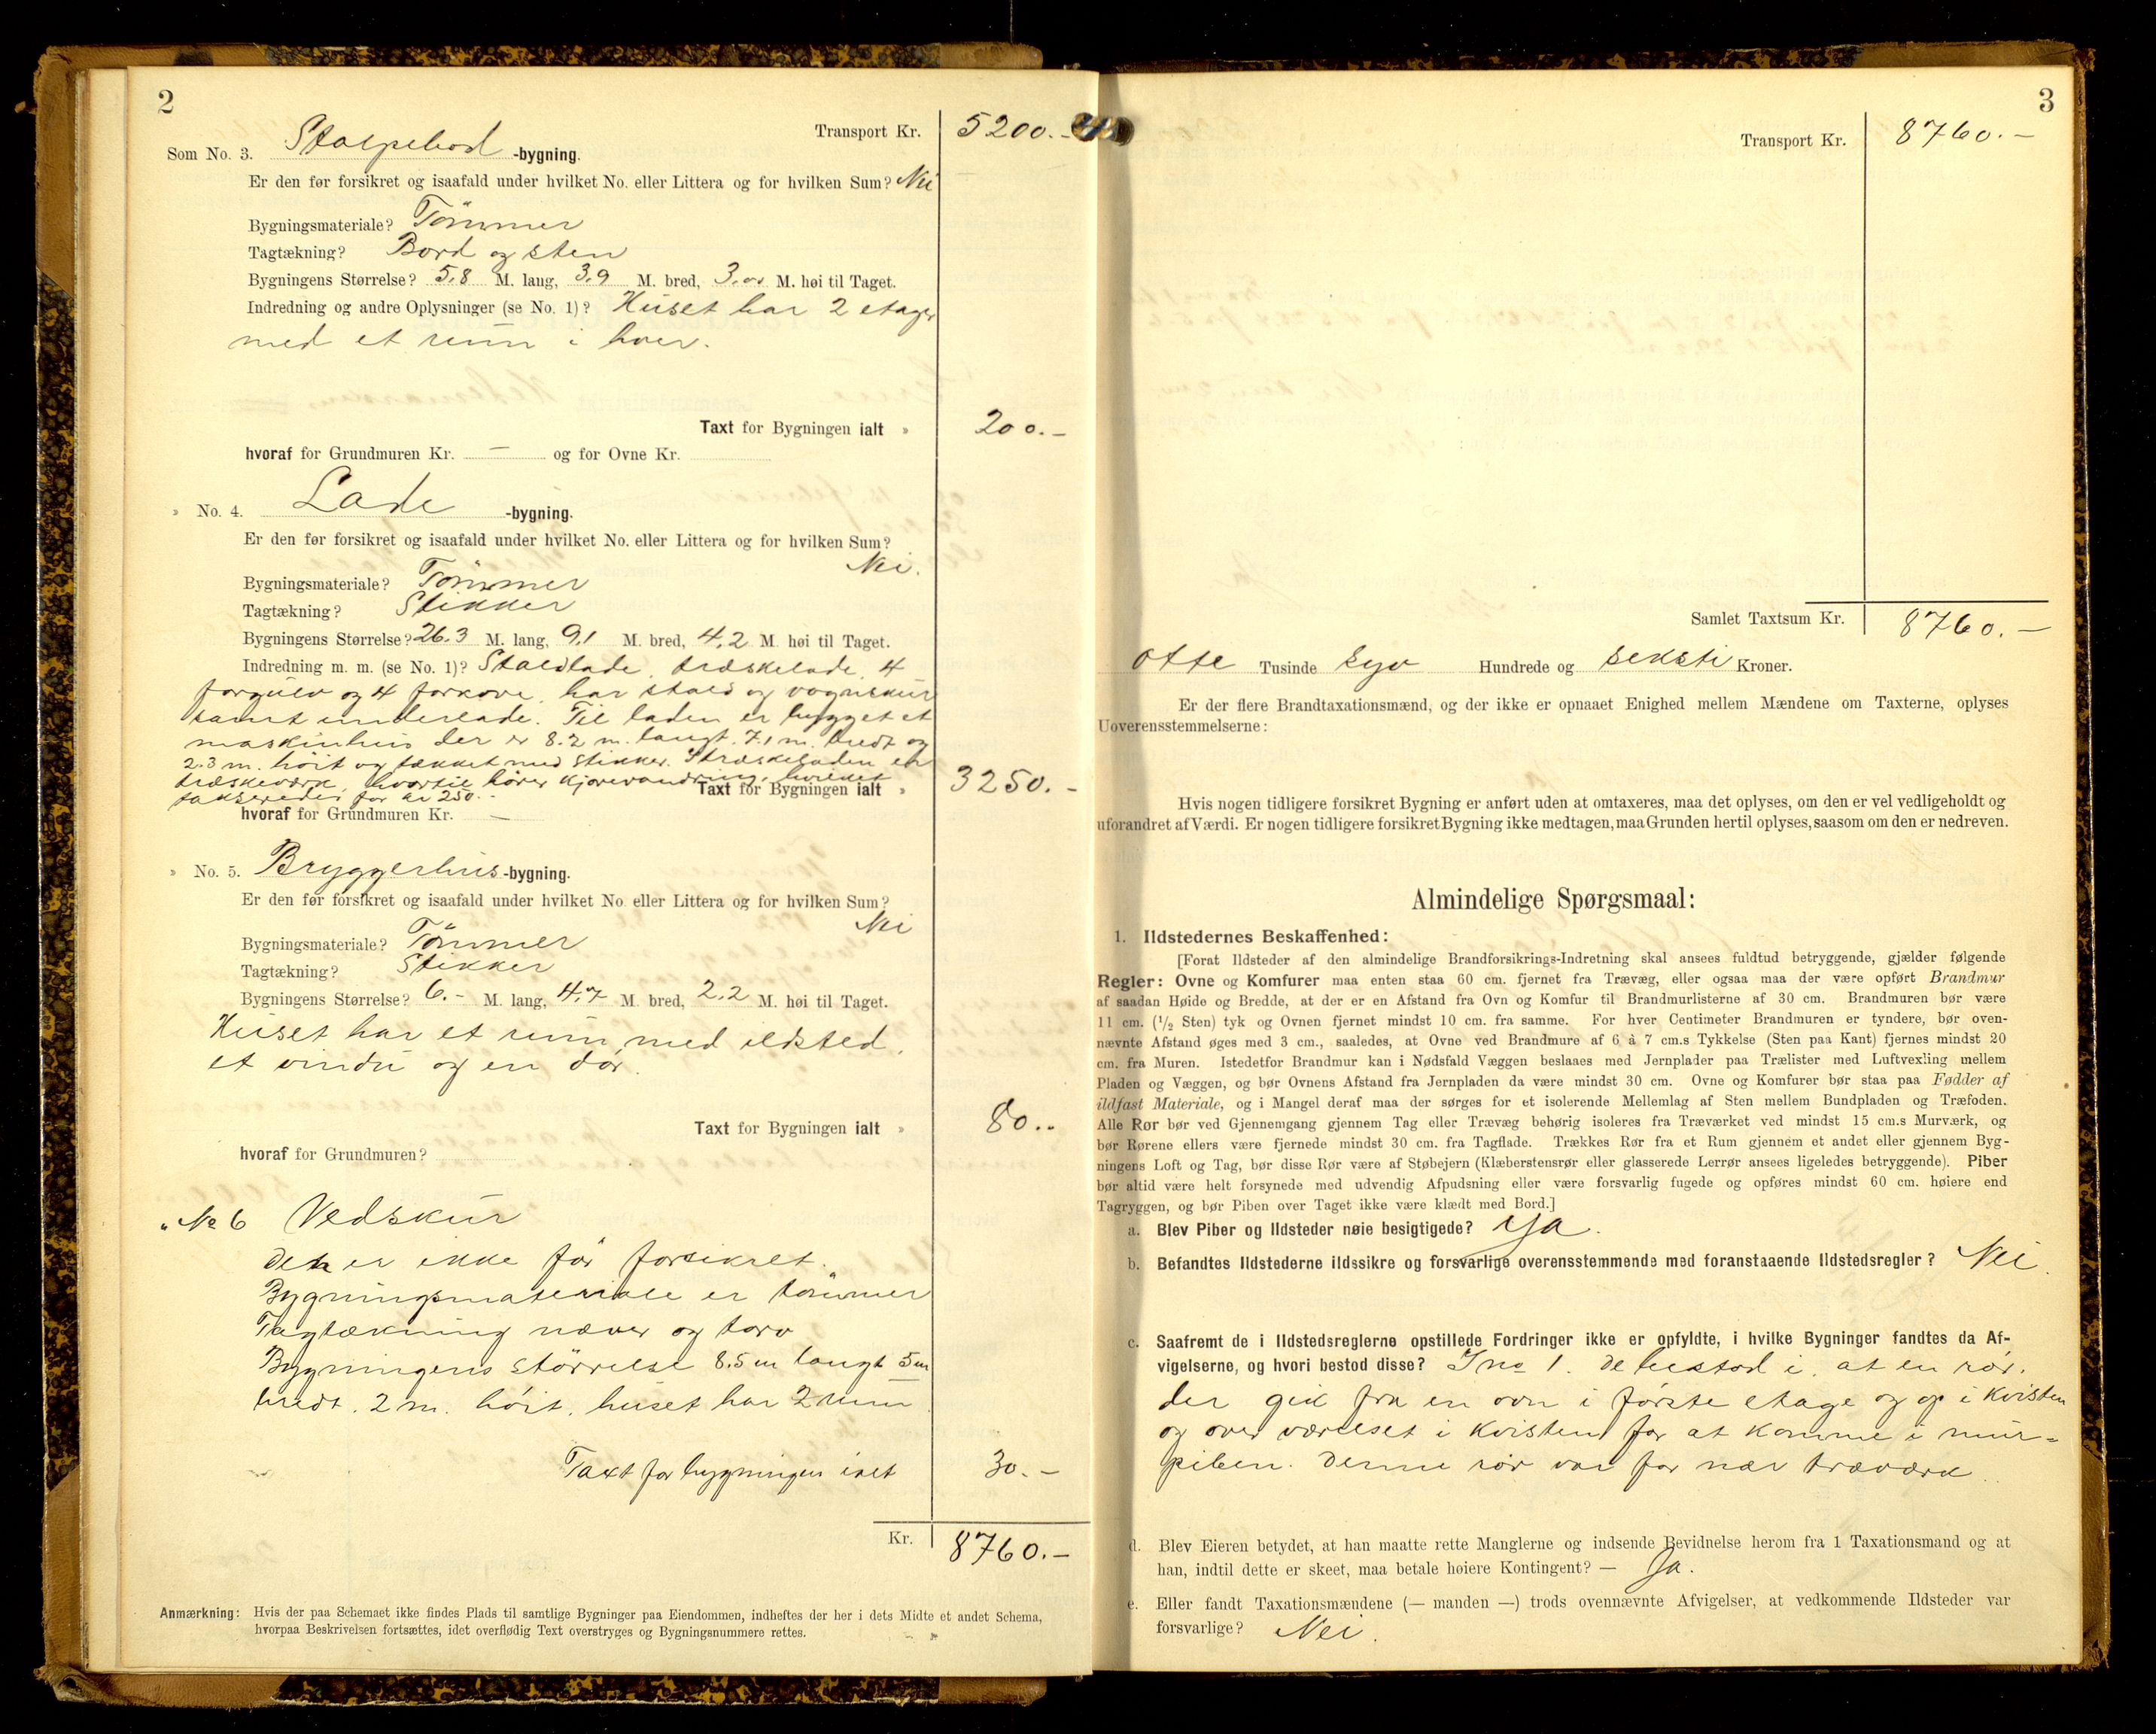 2
Transport Kr. 5200.-
Som No. 3. Stolpebod -bygning.
Er den før forsikret og isaafald under hvilket No. eller Littera og for hvilken Sum? Nei
Bygningsmateriale? Tömmer
Tagtækning? Bord og sten
Bygningens Størrelse? 5,8 M. lang, 3,9 M. bred, 3,00 M. høi til Taget.
Indredning og andre Oplysninger (se No. 1)? Huset har 2 etager
med et rum i hver.
Taxt for Bygningen ialt » 200.-
hvoraf for Grundmuren Kr. — og for Ovne Kr.
» No. 4. Lade -bygning.
Er den før forsikret og isaafald under hvilket No. eller Littera og for hvilken Sum?
Nei.
Bygningsmateriale? Tömmer
Tagtækning? Stikker
Bygningens Størrelse? 26.3 M. lang, 9,1 M. bred, 4,2 M. høi til Taget.
Indredning m. m. (se No. 1)? Staldlade, træskelade, 4
forgulv og 4 forkove, har stald og vognskur
samt underlade. Til laden er bygget et
maskinhus der er 8.2 m. langt, 7.1 m. bredt og
2.3 m. höit og tækket med stikker. I træskeladen er
træskeværk, hvortil hører kjørevandring, hvilket
takseredes for kr 250.-
Taxt for Bygningen ialt » 3250.-
hvoraf for Grundmuren Kr. —
» No. 5. Bryggerhus -bygning.
Er den før forsikret og isaafald under hvilket No. eller Littera og for hvilken Sum?
Nei
Bygningsmateriale? Tömmer
Tagtækning? Stikker
Bygningens Størrelse? 6.- M. lang, 4,7 M. bred, 2,2 M. høi til Taget.
Huset har et rum med ildsted,
et vindu og en dör.
Taxt for Bygningen ialt » 80..
hvoraf for Grundmuren?
" No 6 Vedskur
den er ikke för forsikret.
Bygningsmateriale er tömmer
Tagtækning næver og torv
Bygningens störrelse 8.5 m langt 5 m
bredt, 2 m. höit, huset har 2 rum
Taxt for bygningen ialt 30.-
Kr. 8760.-
Anmærkning: Hvis der paa Schemaet ikke findes Plads til samtlige Bygninger paa Eiendommen, indheftes der her i dets Midte et andet Schema,
hvorpaa Beskrivelsen fortsættes, idet overflødig Text overstryges og Bygningsnummere rettes.
3
Transport Kr. 8760.-
Samlet Taxtsum Kr. 8760.-
otte Tusinde syv Hundrede og seksti Kroner.
Er der flere Brandtaxationsmænd, og der ikke er opnaaet Enighed mellem Mændene om Taxterne, oplyses
Uoverensstemmelserne:
Hvis nogen tidligere forsikret Bygning er anført uden at omtaxeres, maa det oplyses, om den er vel vedligeholdt og
uforandret af Værdi. Er nogen tidligere forsikret Bygning ikke medtagen, maa Grunden hertil oplyses, saasom om den er nedreven.
Almindelige Spørgsmaal:
1. Ildstedernes Beskaffenhed:
[Forat Ildsteder af den almindelige Brandforsikrings-Indretning skal ansees fuldtud betryggende, gjælder følgende
Regler: Ovne og Komfurer maa enten staa 60 cm. fjernet fra Trævæg, eller ogsaa maa der være opført Brandmur
af saadan Høide og Bredde, at der er en Afstand fra Ovn og Komfur til Brandmurlisterne af 30 cm. Brandmuren bør være
11 cm. (1/2 Sten) tyk og Ovnen fjernet mindst 10 cm. fra samme. For hver Centimeter Brandmuren er tyndere, bør oven-
nævnte Afstand øges med 3 cm., saaledes, at Ovne ved Brandmure af 6 à 7 cm.s Tykkelse (Sten paa Kant) fjernes mindst 20
cm. fra Muren. Istedetfor Brandmur kan i Nødsfald Væggen beslaaes med Jernplader paa Trælister med Luftvexling mellem
Pladen og Væggen, og bør Ovnens Afstand fra Jernpladen da være mindst 30 cm. Ovne og Komfurer bør staa paa Fødder af
ildfast Materiale, og i Mangel deraf maa der sørges for et isolerende Mellemlag af Sten mellem Bundpladen og Træfoden.
Alle Rør bør ved Gjennemgang gjennem Tag eller Trævæg behørig isoleres fra Træværket ved mindst 15 cm.s Murværk, og
bør Rørene ellers være fjernede mindst 30 cm. fra Tagflade. Trækkes Rør fra et Rum gjennem et andet eller gjennem Byg-
ningens Loft og Tag, bør disse Rør være af Støbejern (Klæberstensrør eller glasserede Lerrør ansees ligeledes betryggende). Piber
bør altid være helt forsynede med udvendig Afpudsning eller være forsvarlig fugede og opføres mindst 60 cm. høiere end
Tagryggen, og bør Piben over Taget ikke være klædt med Bord.]
a. Blev Piber og Ildsteder nøie besigtigede? Ja.
b. Befandtes Ildstederne ildssikre og forsvarlige overensstemmende med foranstaaende Ildstedsregler? Nei.
c. Saafremt de i Ildstedsreglerne opstillede Fordringer ikke er opfyldte, i hvilke Bygninger fandtes da Af-
vigelserne, og hvori bestod disse? I no 1. De bestod i, at en rör,
der gik fra en ovn i förste etage og op i kvisten
og over værelset i kvisten for at komme i mur=
piben. Denne rör var for nær træværk.
d. Blev Eieren betydet, at han maatte rette Manglerne og indsende Bevidnelse herom fra 1 Taxationsmand og at
han, indtil dette er skeet, maa betale høiere Kontingent? — Ja.
e. Eller fandt Taxationsmændene (— manden —) trods ovennævnte Afvigelser, at vedkommende Ildsteder var
forsvarlige? Nei.